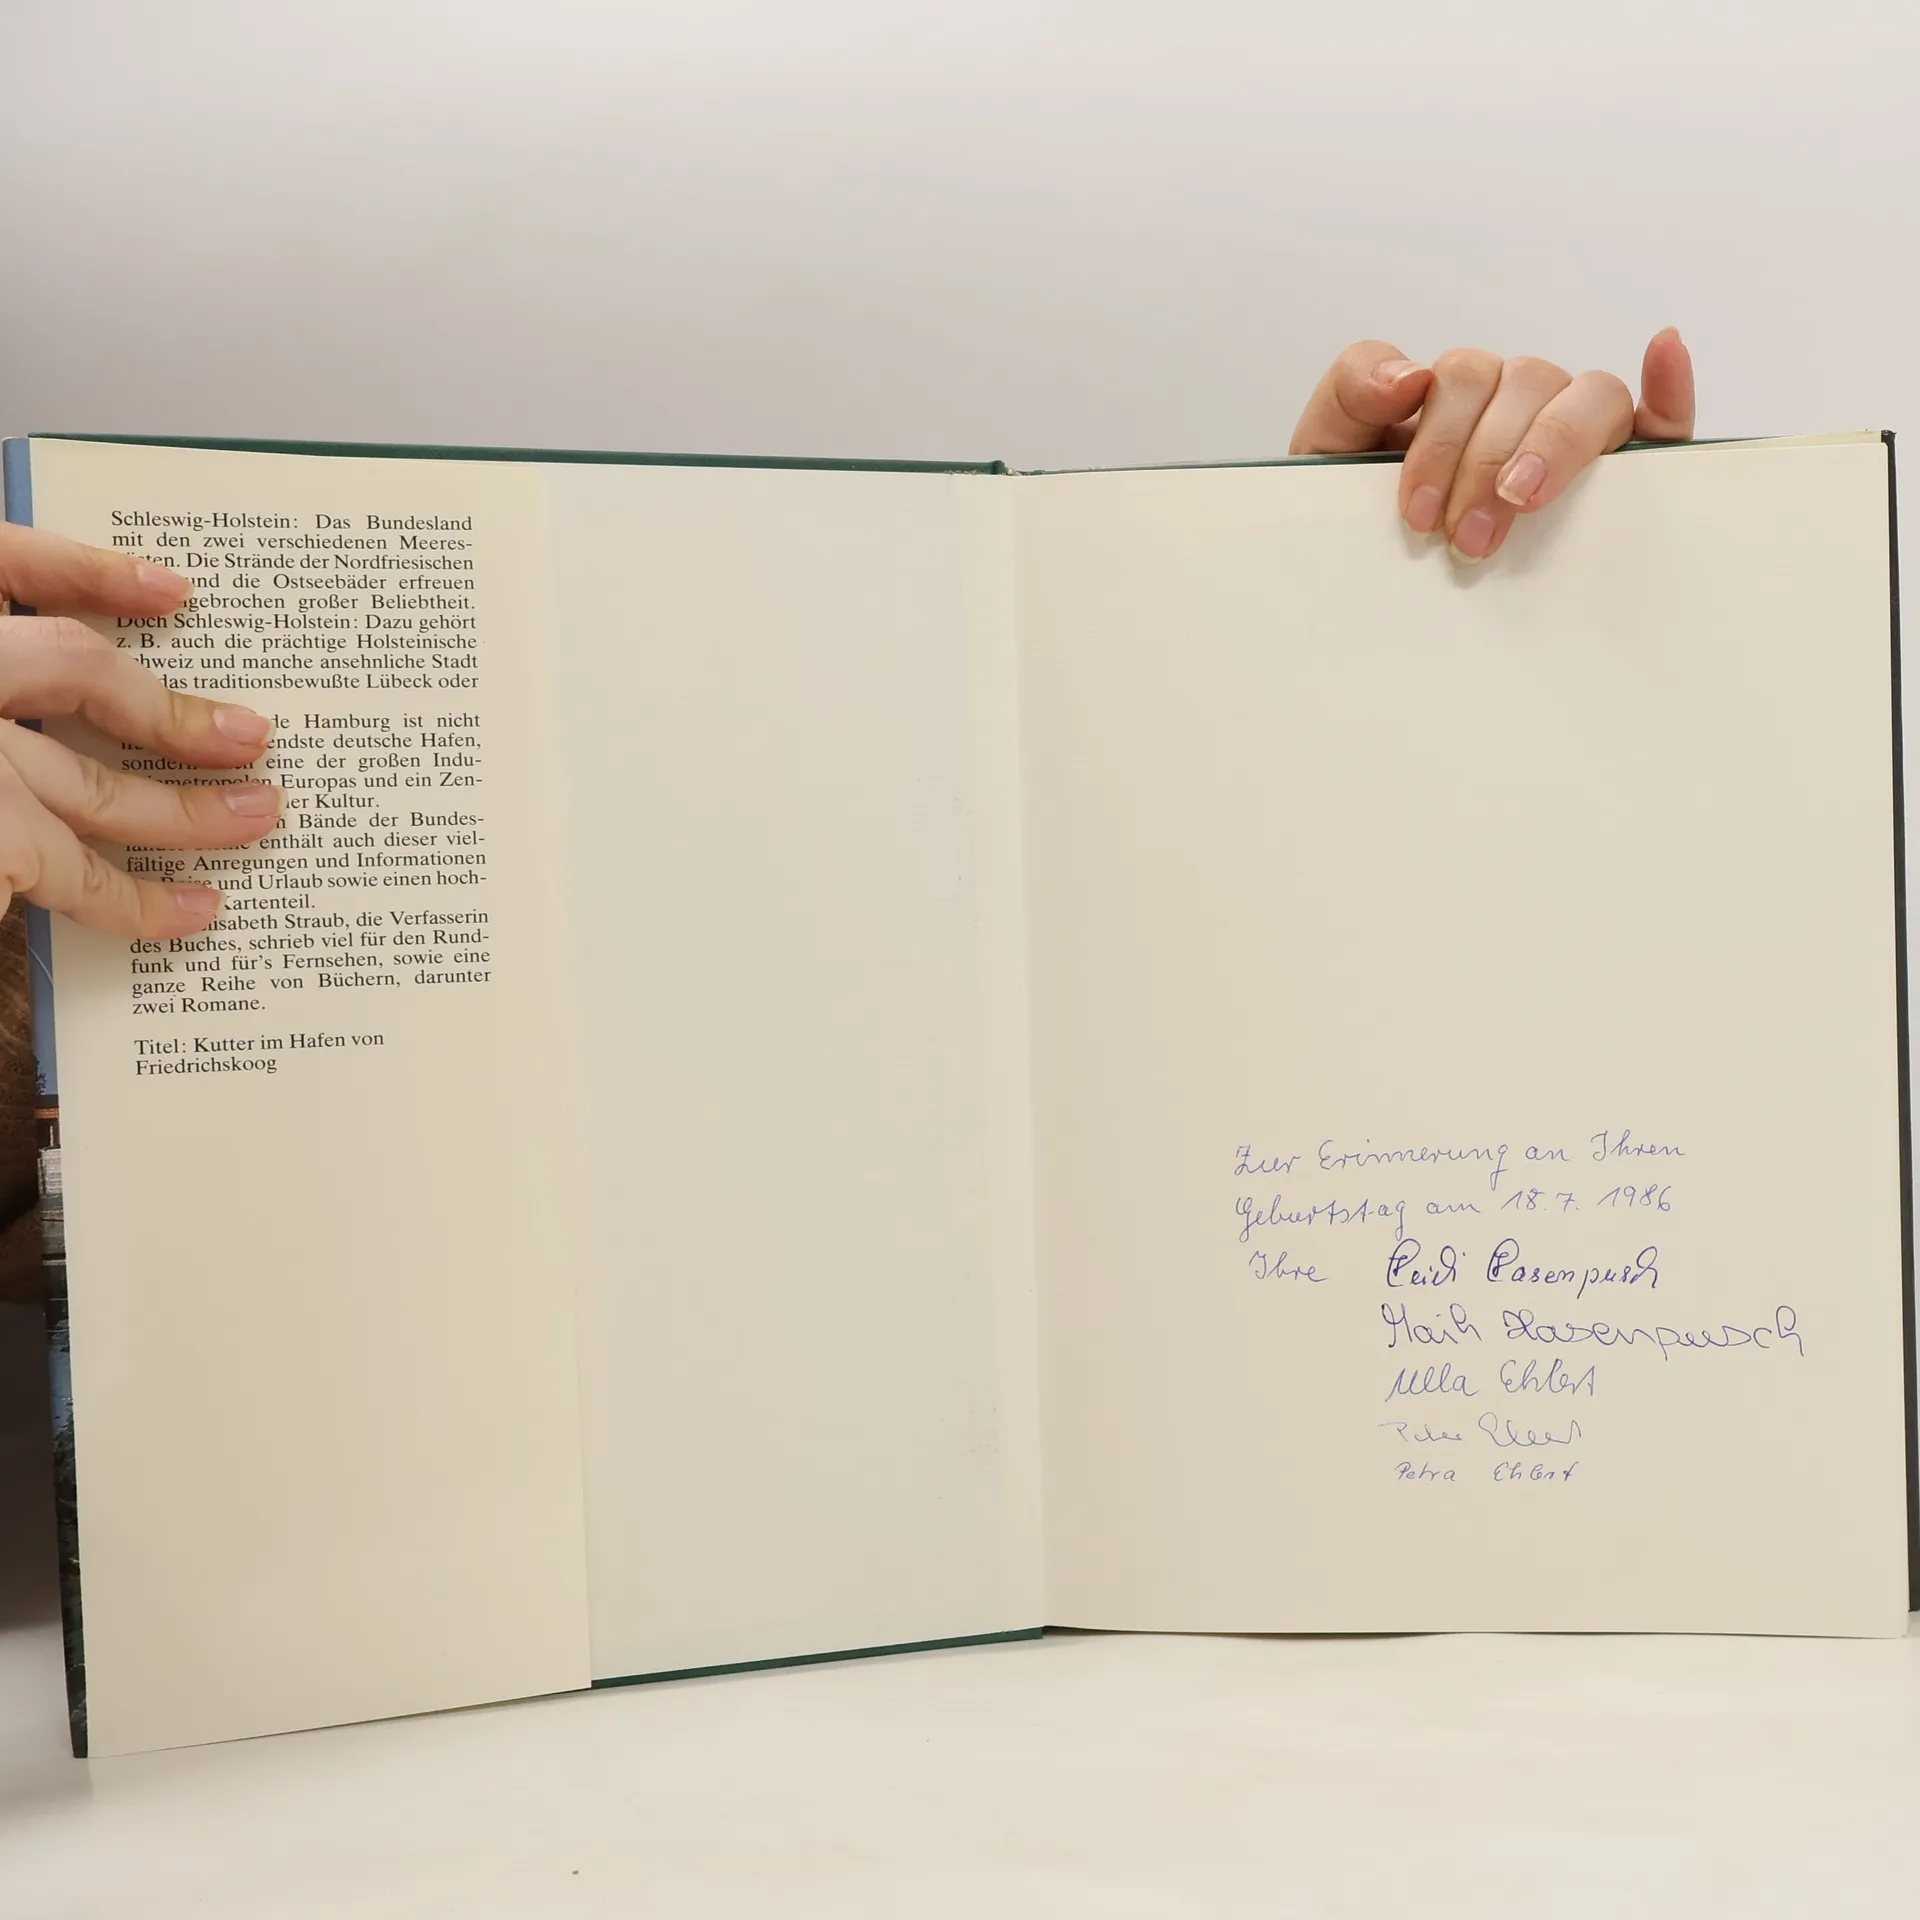 Schleswig-Holstein: Das Bundesland
mit den zwei verschiedenen Meeres-
Die Strände der Nordfriesischen
und die Ostseebäder erfreuen
großer Beliebtheit.
Doch Schleswig-Holstein: Dazu gehört
z. B. auch die prächtige Holsteinische
und manche ansehnliche Stadt
das traditionsbewußte Lübeck oder
Hamburg ist nicht
deutsche Hafen,
eine der großen Indu-
Europas und ein Zen-
Kultur.
Bände der Bundes-
enthält auch dieser viel-
fältige Anregungen und Informationen
und Urlaub sowie einen hoch-
Kartenteil.
Straub, die Verfasserin
des Buches, schrieb viel für den Rund-
funk und für's Fernsehen, sowie eine
ganze Reihe von Büchern, darunter
zwei Romane.
Titel: Kutter im Hafen von
Friedrichskoog
Zur Erinnerung an Ihren
Geburtstag am 18.7. 1986
Ihre Heidi Hasenpusch
Maik Hasenpusch
Ulla Ehlert
Peter Ehlert
Petra Ehlert